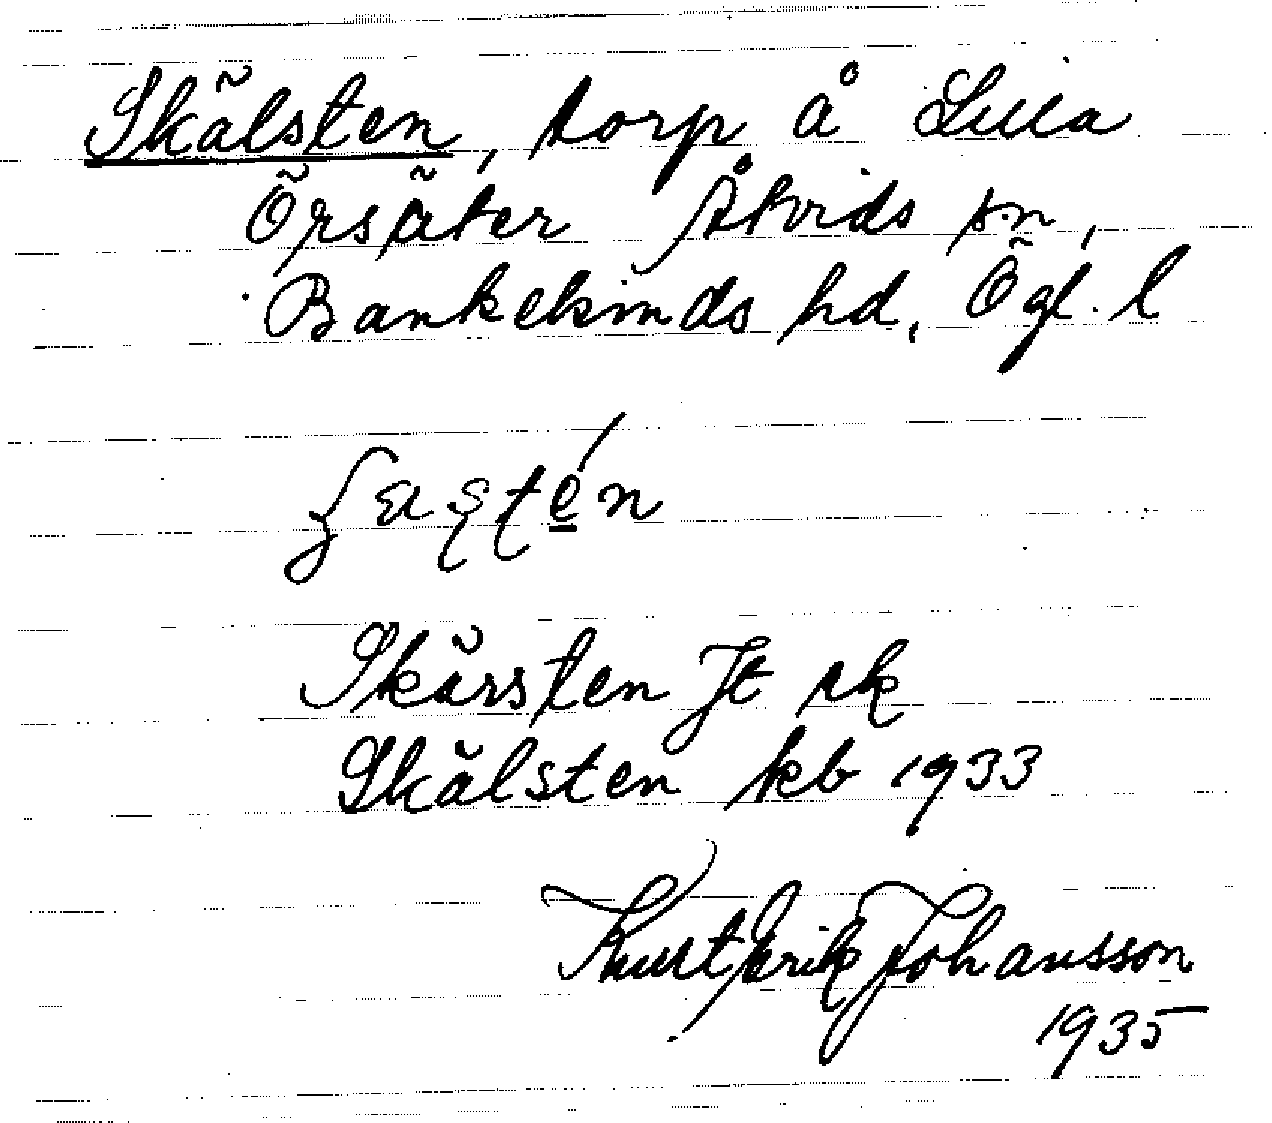 Skälsten, torp å Lilla
Örsäter Åtvids sn,
Bankekinds hd, Ögl. l
Skärsten Jt rk
Skälsten kb 1933
Kurt Erik Johansson
1935